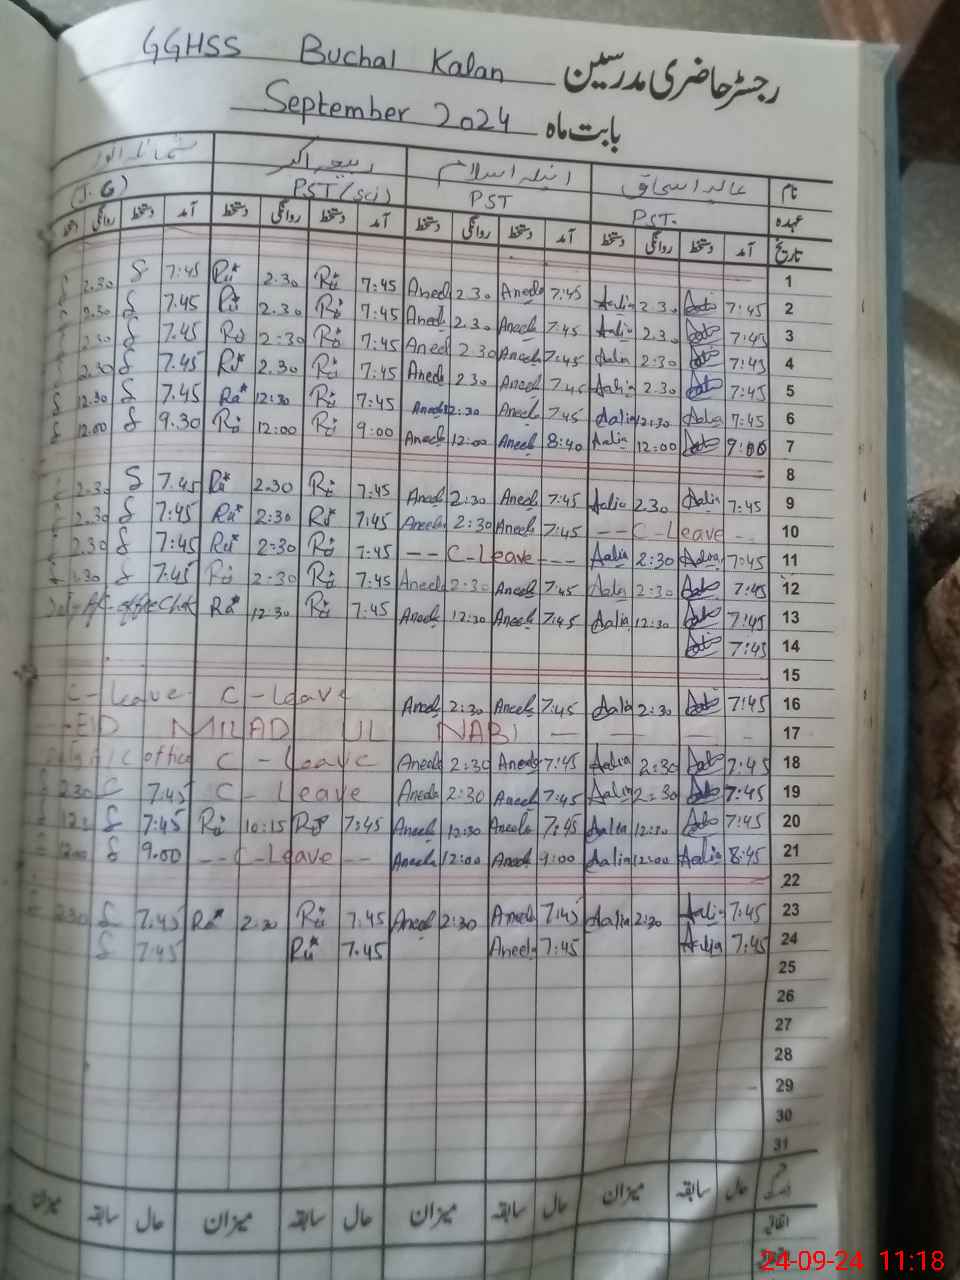 GGHSS Buchal Kalan رجسٹر حاضری مدرسین
September 2024 بابت ماہ
نام عالیہ اسحاق انیلہ اسلام ربیعہ اکبر
عہدہ PST. PST PST (Sci) (J.G)
تاریخ آمد دستخط روانگی دستخط آمد دستخط روانگی دستخط آمد دستخط روانگی دستخط آمد دستخط روانگی دستخط
1
2.30 7:45 2.30 7:45 Aneela 2.30 Aneela 7:45 Aalia 2.30 7:45 2
2.30 7.45 2.30 7:45 Aneela 2.30 Aneela 7:45 Aalia 2.30 7:45 3
2.30 7.45 2:30 7:45 Aneela 2:30 Aneela 7:45 Aalia 2:30 7:45 4
2.30 7.45 2.30 7:45 Aneela 2.30 Aneela 7:45 Aalia 2.30 7:45 5
12.30 7.45 12:30 7:45 Aneela 12:30 Aneela 7:45 Aalia 12:30 Aalia 7:45 6
12.00 9.30 12:00 9:00 Aneela 12:00 Aneela 8:40 Aalia 12:00 9:00 7
8
2.30 7.45 2.30 7:45 Aneela 2:30 Aneela 7:45 Aalia 2.30 Aalia 7:45 9
2.30 7:45 2:30 7:45 Aneela 2:30 Aneela 7:45 -- C-Leave -- 10
2.30 7:45 2:30 7:45 -- C-Leave --- Aalia 2:30 Aalia 7:45 11
2.30 7:45 2:30 7:45 Aneela 2:30 Aneela 7:45 Aalia 2:30 7:45 12
12.30 7:45 Aneela 12:30 Aneela 7:45 Aalia 12:30 7:45 13
7:45 14
15
C-Leave C-Leave Aneela 2:30 Aneela 7:45 Aalia 2:30 7:45 16
EID MILAD UL NABI 17
office C-Leave Aneela 2:30 Aneela 7:45 Aalia 2:30 7:45 18
2.30 7:45 C-Leave Aneela 2:30 Aneela 7:45 Aalia 2:30 7:45 19
7:45 10:15 7:45 Aneela 12:30 Aneela 7:45 Aalia 12:30 7:45 20
12.00 9.00 -- C-Leave -- Aneela 12:00 Aneela 9:00 Aalia 12:00 Aalia 8:45 21
22
2.30 7:45 2:30 7:45 Aneela 2:30 Aneela 7:45 Aalia 2:30 Aalia 7:45 23
7:45 7:45 Aneela 7:45 Aalia 7:45 24
25
26
27
28
29
30
31
حال سابقہ میزان حال سابقہ میزان حال سابقہ میزان حال سابقہ میزان
اتفاقیہ
24-09-24 11:18